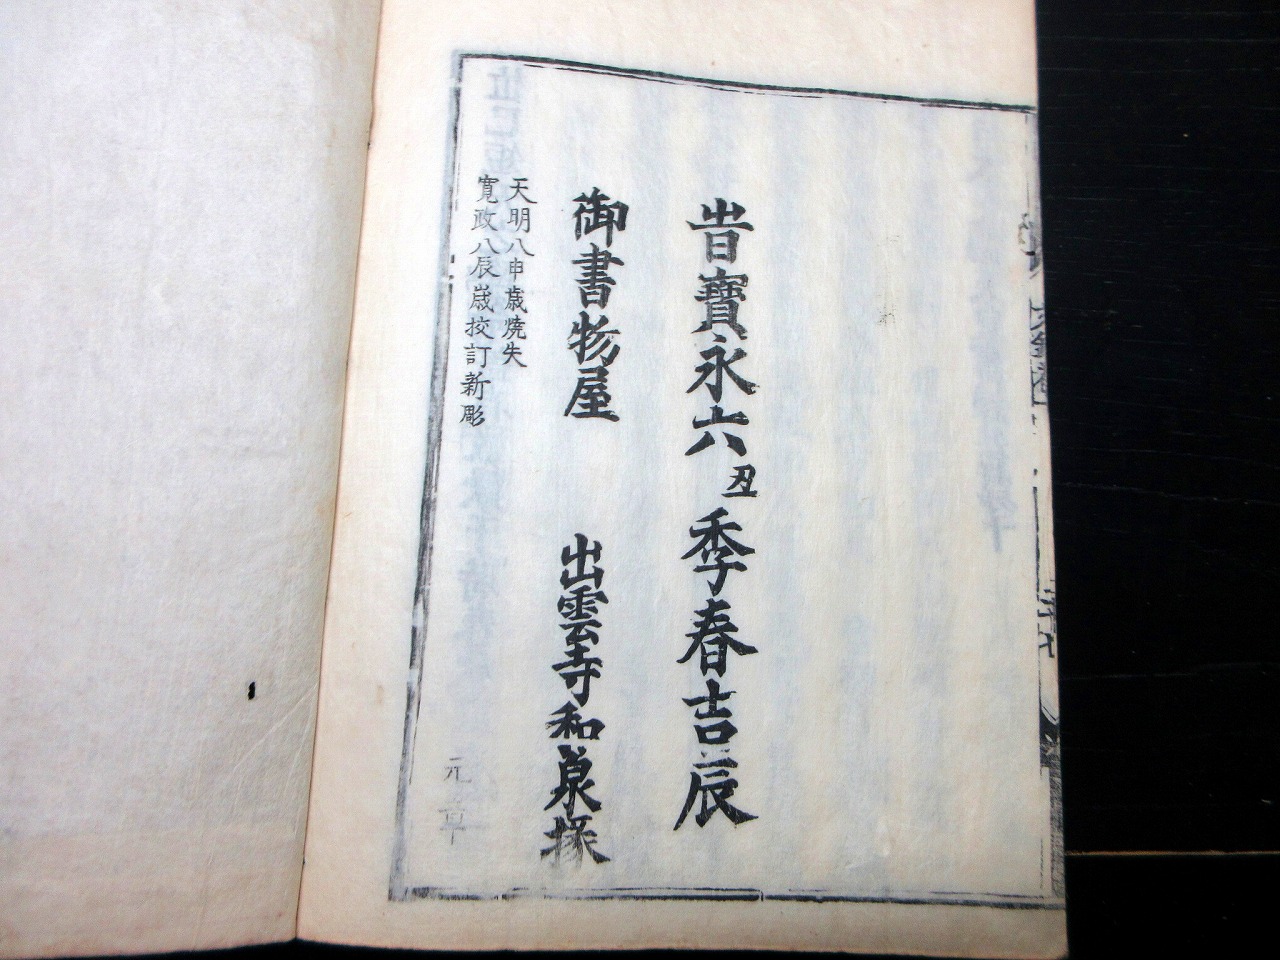 旹寶永六丑季春吉辰
御書物屋 出雲寺和泉掾
天明八申歳燒失
寛政八辰歳挍訂新彫
元章